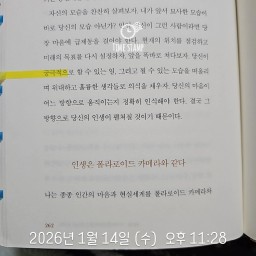 자신의 모습을 찬찬히 살펴보자. 내가 알지 묘사한 모습이
바로 당신의 모습 아닌가? 만일 당신이 그런 사람이라면 당
장 마음에 급제동을 걸어야 한다. 현재의 위치를 점검하고
미래의 목표를 다시 설정하자. 앞을 똑바로 쳐다보자. 당신이
궁극적으로 할 수 있는 일, 그리고 될 수 있는 모습을 떠올리
며 위대하고 훌륭한 생각들로 의식을 채우자. 당신의 마음이
어느 방향으로 움직이는지 정확히 인식해야 한다. 결국 그
방향으로 당신의 인생이 펼쳐질 것이기 때문이다.
인생은 폴라로이드 카메라와 같다
나는 종종 인간의 마음과 현실세계를 폴라로이드 카메라와
262
TIME STAMP
2026년 1월 14일 (수) 오후 11:28